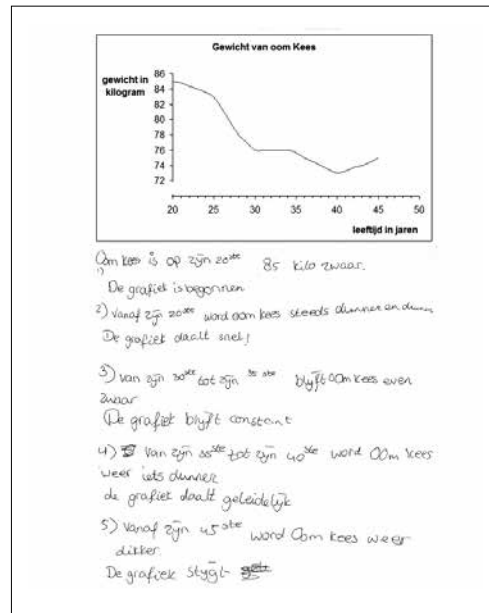 Gewicht van oom Kees
gewicht in
kilogram
86
84
82
80
78
76
74
72
20 25 30 35 40 45 50
leeftijd in jaren
Oom Kees is op zijn 20ste 85 kilo zwaar.
1)
De grafiet is begonnen
2) Vanaf zijn 20ste word oom kees steeds dunner en dunn
De grafiek daalt snel!
3) van zijn 30ste tot zijn 35 ste blijft Oom Kees even
zwaar
De grafiek blijft constant
4) Van zijn 35ste tot zijn 40ste word Oom Kees
weer iets dunner
de grafiek daalt geleidelijk
5) Vanaf zijn 45ste word Oom Kees weer
dikker.
De grafiek stijgt